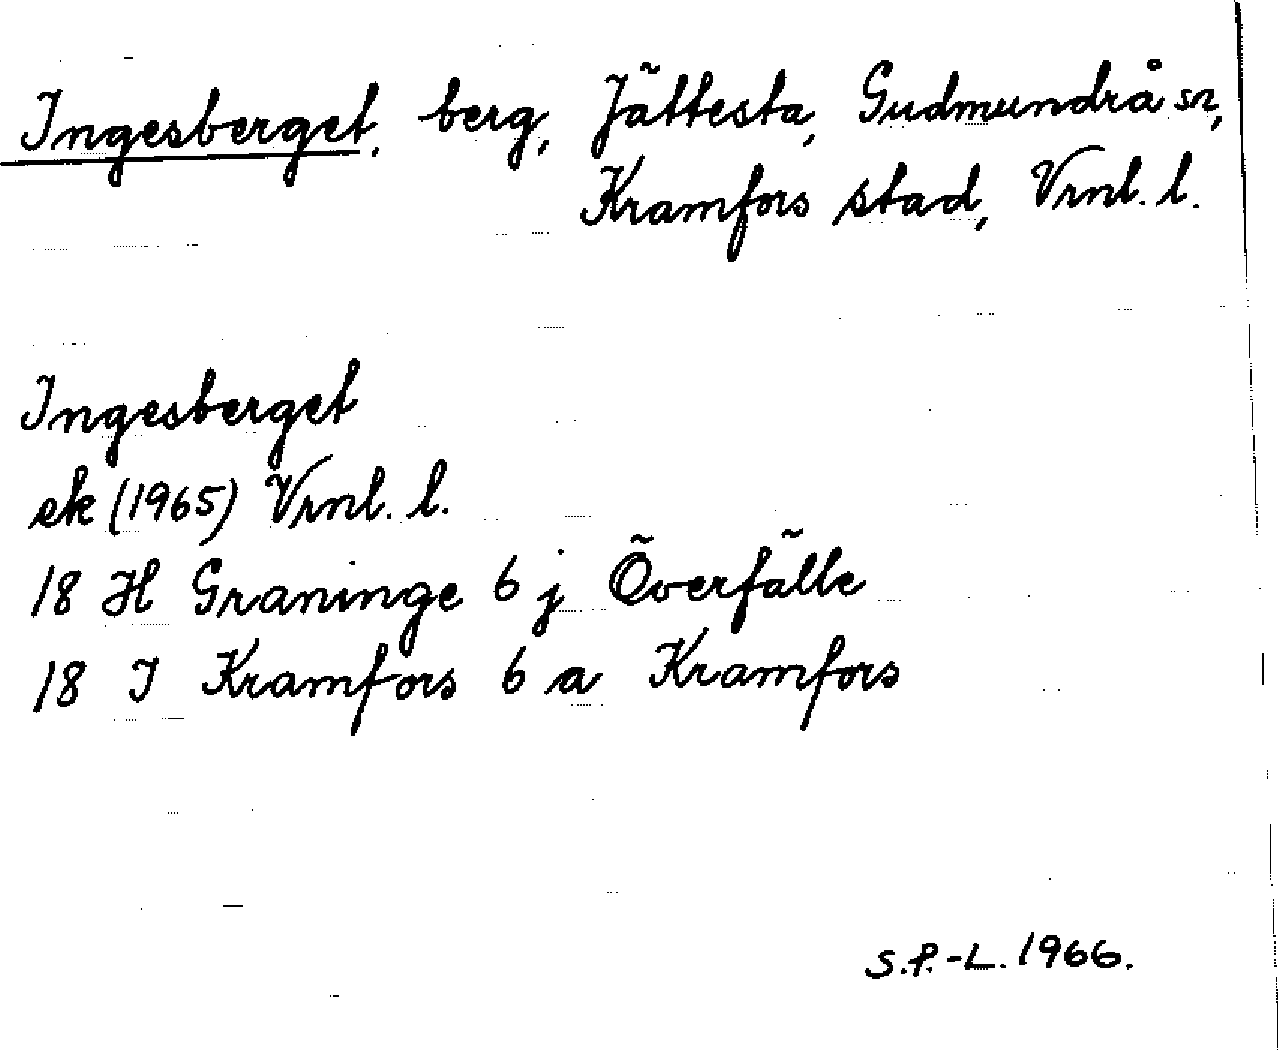 Ingesberget, berg, Jättesta, Gudmundrå sn,
Kramfors stad, Vrnl. l.
Ingesberget
ek (1965) Vrnl. l.
18 H Graninge 6 j Överfälle
18 I Kramfors 6 a Kramfors
S.P.-L. 1966.